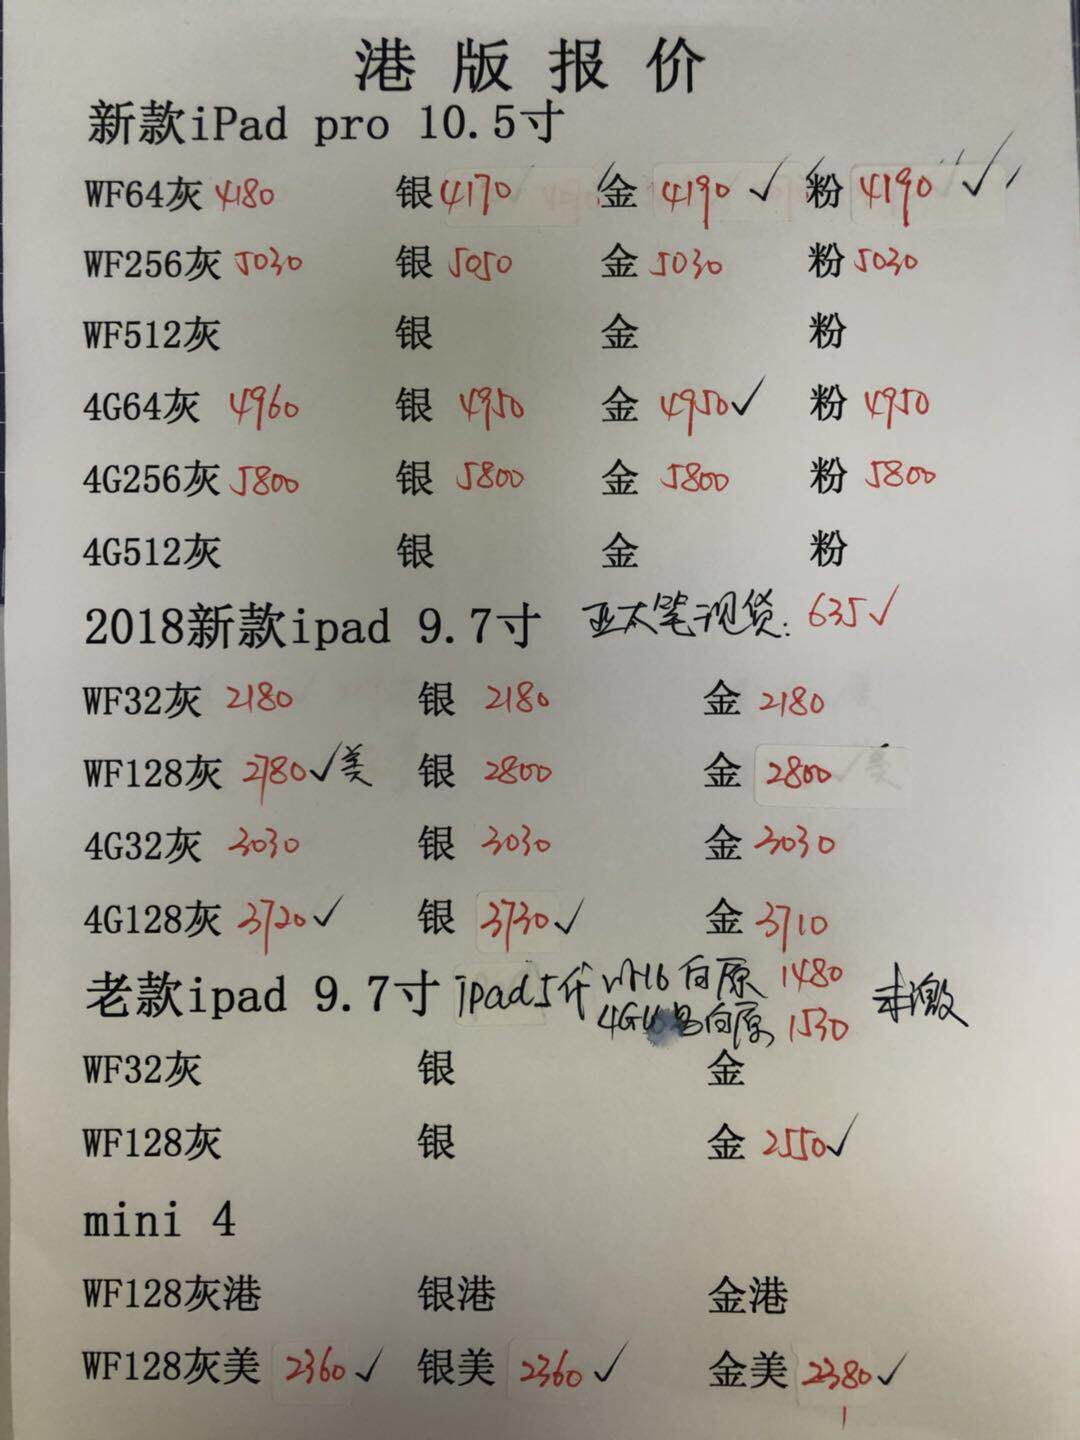 港版报价
新款iPad pro 10.5寸
WF64灰 4180 银 4170 金 4190 ✓ 粉 4190 ✓
WF256灰 5030 银 5050 金 5030 粉 5030
WF512灰 银 金 粉
4G64灰 4960 银 4950 金 4950 ✓ 粉 4950
4G256灰 5800 银 5800 金 5800 粉 5800
4G512灰 银 金 粉
2018新款ipad 9.7寸 亚太笔现货: 635 ✓
WF32灰 2180 银 2180 金 2180
WF128灰 2780 ✓美 银 2800 金 2800
4G32灰 3030 银 3030 金 3030
4G128灰 3720 ✓ 银 3730 ✓ 金 3710
老款ipad 9.7寸 ipad5代 16 白原 1480 未激
4G 白原 1530
WF32灰 银 金
WF128灰 银 金 2550 ✓
mini 4
WF128灰港 银港 金港
WF128灰美 2360 ✓ 银美 2360 ✓ 金美 2380 ✓